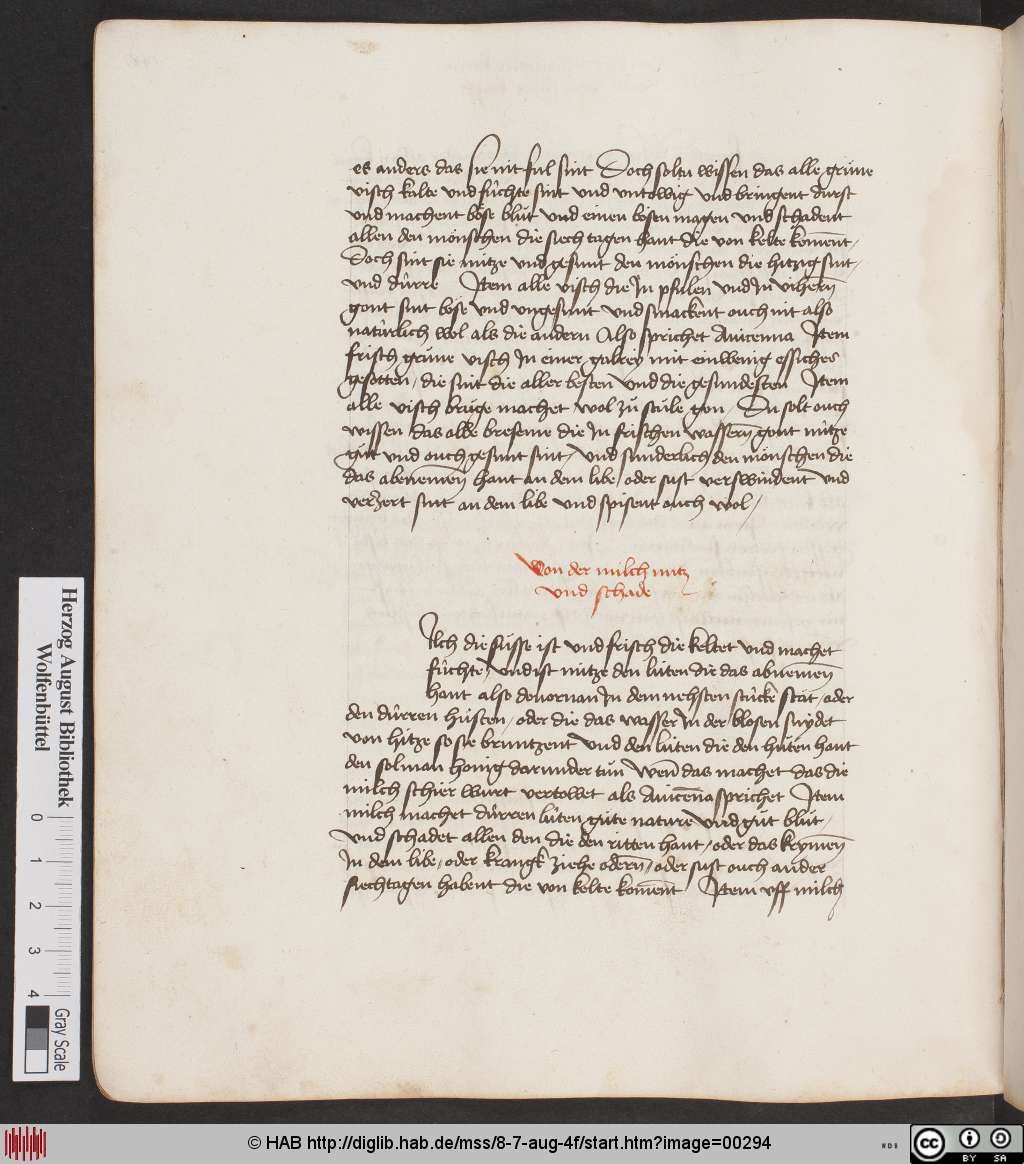 es anders das sie nit ful sint Doch soltu wissen das alle grüne
visch kalte und fúchte sint und untowig und bringent durst
und machent böse blůt und einen bösen magen und schadent
allen den mönschen die siechtagen hant die von kelte koment
Doch sint sie nútze und gesunt den mönschen die hitzig sint
und dúrre Item alle visch die In pfulen und In vihern
gont sint böse und ungesunt und smackent ouch nit also
natúrlich wol als die andern Also sprichet Auicenna Item
frisch grüne visch In einer galrey mit ein wenig essiches
gesotten, die sint die aller besten und die gesundesten Item
alle visch brüge machet wol zů stůle gon, Du solt ouch
wissen das alle breseme die In frischen wassern gont nútze
gůt und ouch gesunt sint, und sunderlich den mönschen die
das abenemen hant an dem libe, oder sust verswindent und
verzert sint an dem libe und spisent ouch wol,
Von der milch nutz
und schade
Ilch die süsse ist und frisch die keltet und machet
fúchte, und ist nútze den lúten die das abnemen
hant also douornan In dem nehsten stúcke stat, oder
den dúrren hůsten, oder die das wasser In der blosen snydet
von hitze so sie bruntzent und den lúten die den hůten hant
den sol man honig darunder tůn wen das machet das die
milch schier wurt vertowet als Auicenna sprichet Item
milch machet dúrren lúten gůte nature und gůt blůt,
und schadet allen den die den ritten hant, oder das krymen
In dem libe, oder krangk ziehe odern, oder sust ouch ander
siechtagen habent die von kelte koment Item uff milch
Herzog August Bibliothek
Wolfenbüttel
0 1 2 3 4
Gray Scale
© HAB http://diglib.hab.de/mss/8-7-aug-4f/start.htm?image=00294
WDB
cc BY SA